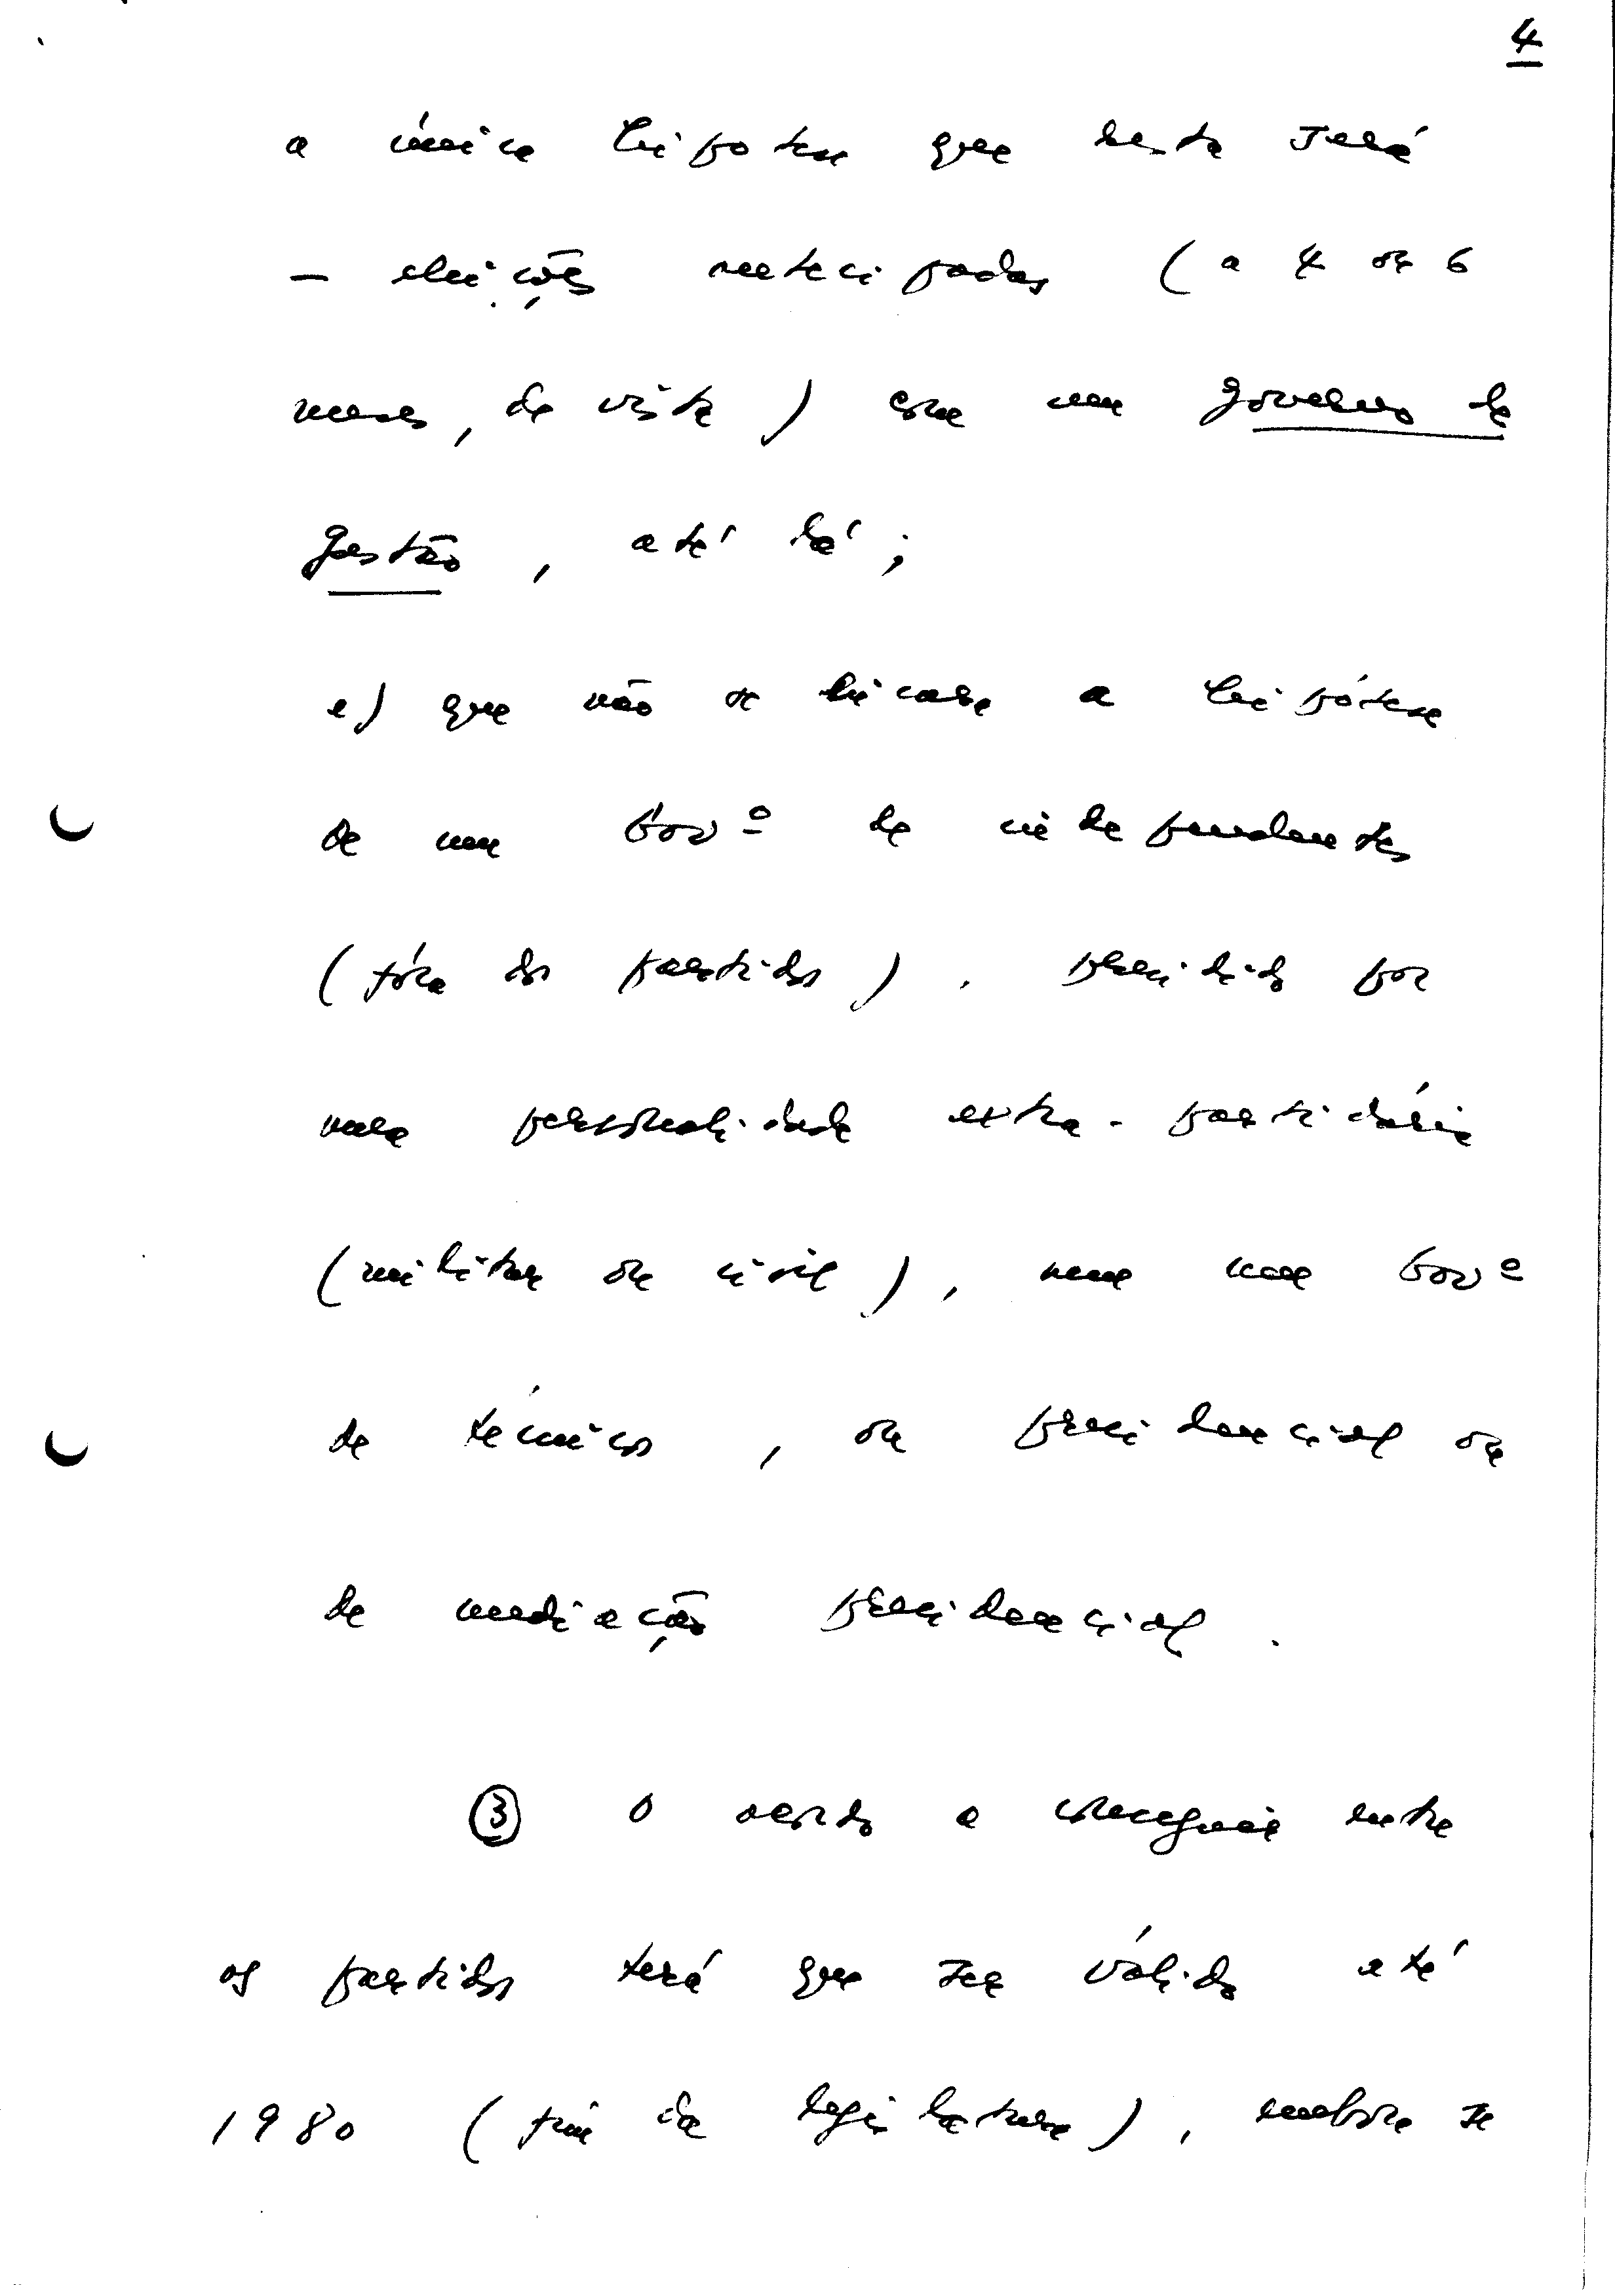 4
a única hipotese que resta será
— eleições antecipadas (a 4 ou 6
meses, de vista) com um governo de
gestão, até lá;
e) que não se encare a hipótese
de um Govº de independentes
(fóra dos partidos), presidido por
uma personalidade extra-partidária
(militar ou civil), nem um Govº
de técnicos, ou presidencial ou
de mediação presidencial.
③ O acordo a conseguir entre
os partidos terá que ser válido até
1980 (fim da legislatura), embora se